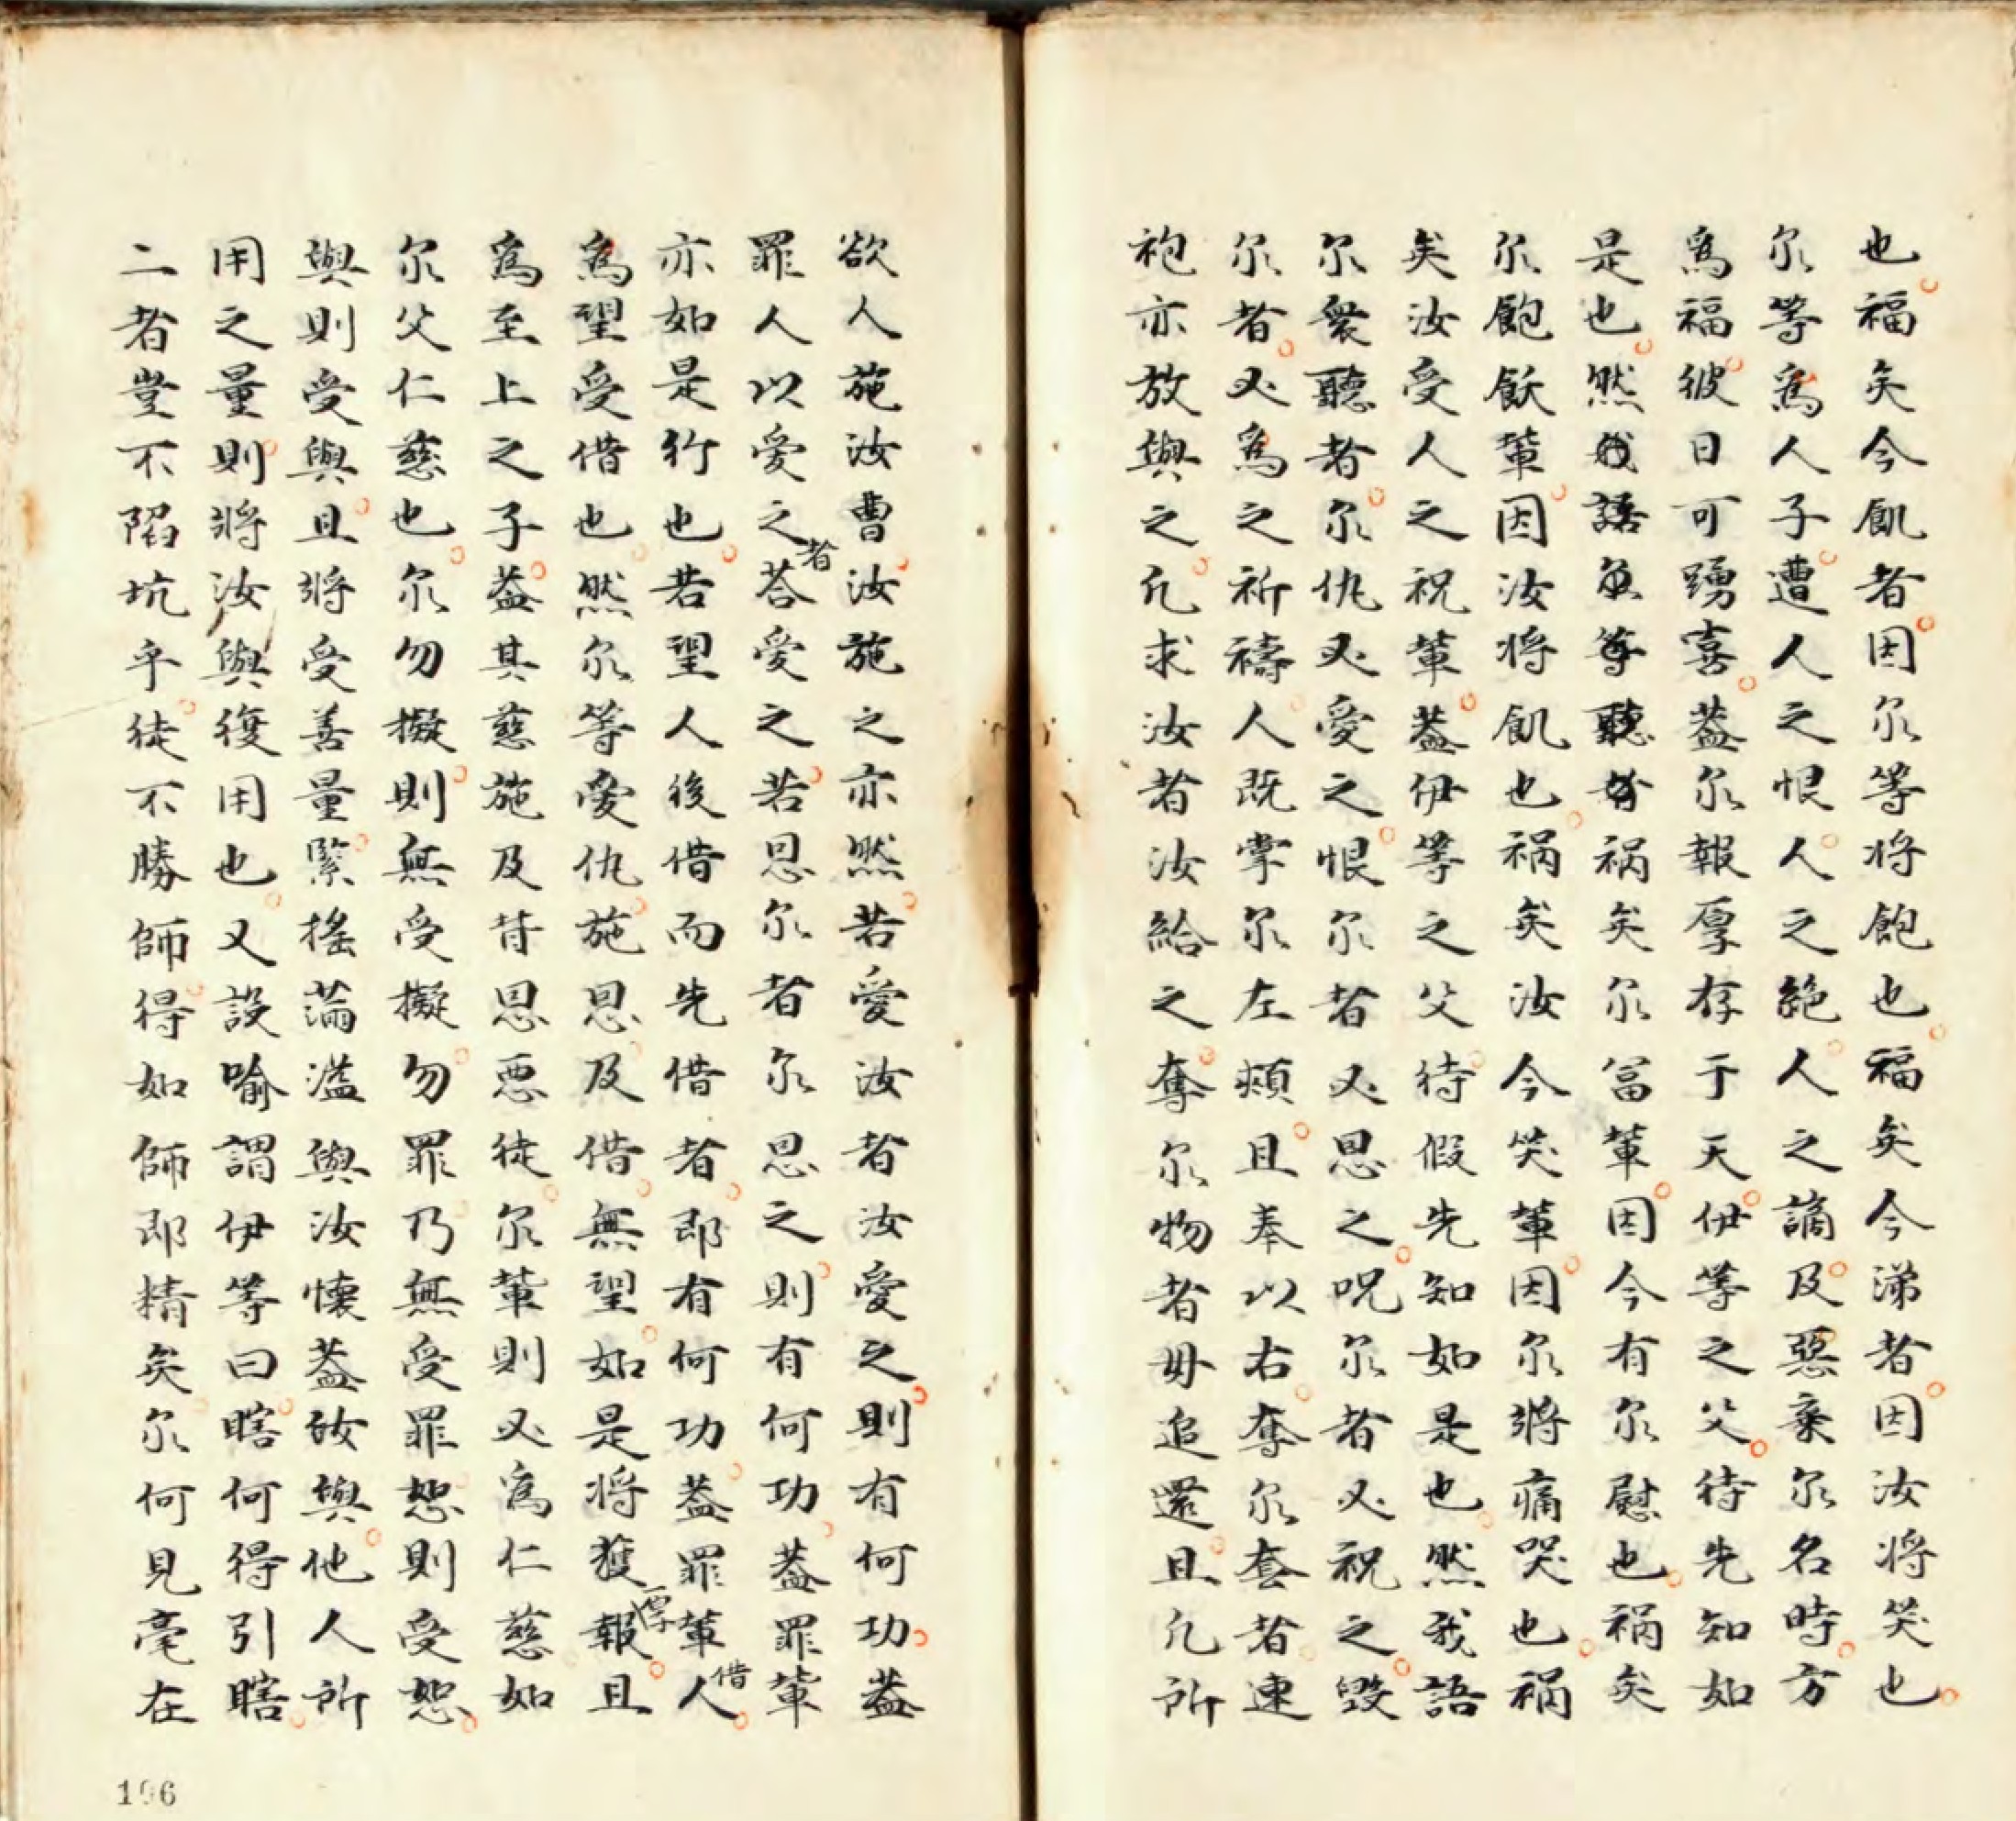 也福矣今飢者因尔等将飽也福矣今涕者因汝将笑也
尔等為人子遭人之恨人之絶人之謫及惡棄尔名時方
為福彼日可踴喜葢尔報厚存于天伊等之父待先知如
是也然我語祸矣尔冨軰因今有尔慰也祸矣
尔飽飫軰因汝将飢也祸矣汝今笑軰因尔将痛哭也祸
矣汝受人之祝軰葢伊等之父待假先知如是也然我語
尔衆聽者尔仇必愛之恨尔者必恩之呪尔者必祝之毁
尔者必為之祈禱人既掌尔左頰且奉以右奪尔套者連
袍亦放與之凡求汝者汝給之奪尔物者毋追還且凡所
欲人施汝曹汝施之亦然若愛汝者汝愛之則有何功葢
罪人以愛之者荅愛之若恩尔者尔恩之則有何功葢罪軰
亦如是行也若望人後借而先借者即有何功葢罪軰借人
為望受借也然尔等愛仇施恩及借無望如是将獲厚報且
為至上之子葢其慈施及背恩悪徒尔軰則必為仁慈如
尔父仁慈也尔勿擬則無受擬勿罪乃無受罪恕則受恕
與則受與且将受善量緊搖滿溢與汝懷葢汝與他人所
用之量則将汝與復用也又設喻謂伊等曰瞎何得引瞎
二者豈不陷坑乎徒不勝師得如師即精矣尔何見毫在
106